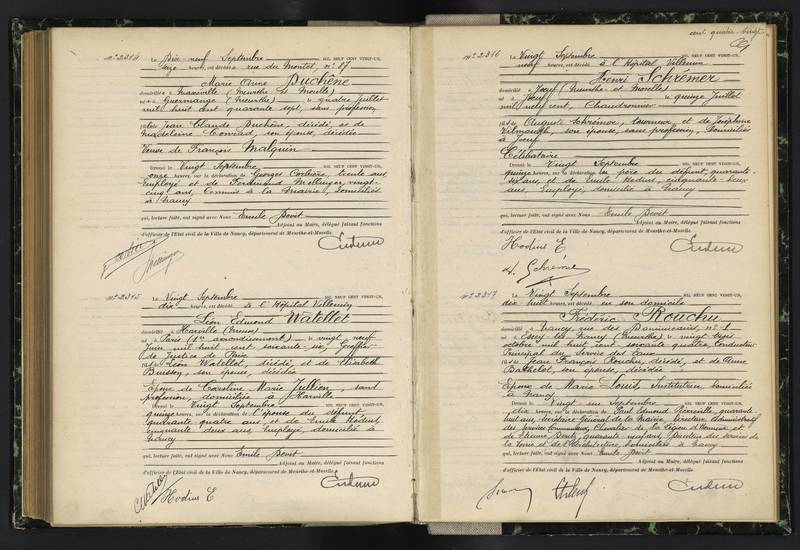 n° 2314
Le Dix-neuf Septembre MIL NEUF CENT VINGT-UN,
heures, est décédée rue du Montet, n° 87
Marie Anne Duchêne
domiciliée à Maxéville (Meurthe et Moselle)
née à Guermange (Meurthe) le quatre juillet
mil huit cent quarante sept, sans profession,
Jean Claude Duchêne, décédé, et de
Madeleine Conrad, son épouse, décédée
Veuve de François Malquin
Dressé le Vingt Septembre MIL NEUF CENT VINGT-UN,
onze heures, sur la déclaration de Georges Corbière, trente ans
employé et de Ferdinand Mellinger, vingt-
cinq ans, Commis à la Mairie, domiciliés
à Nancy
qui, lecture faite, ont signé avec Nous Emile
Adjoint au Maire, délégué faisant fonctions
d'officier de l'État civil de la Ville de Nancy, département de Meurthe-et-Moselle.
n° 2315
Le Vingt Septembre MIL NEUF CENT VINGT-UN,
dix heures, est décédé à l'Hôpital Villemin
Léon Edmond Watellet
domicilié à Harville (Meuse)
né à Paris (arrondissement) le vingt neuf
mil huit cent soixante six, Greffier
de Justice de Paix
Léon Watellet, décédé, et de Elisabeth
Buisson, son épouse, décédée
Epoux de Caroline Marie Jullien, sans
profession, domiciliée à Harville
Dressé le Vingt Septembre MIL NEUF CENT VINGT-UN,
quinze heures, sur la déclaration de l'épouse du défunt
quarante quatre ans, et de Emile Hodius,
cinquante deux ans, employé, domicilié à
Nancy
qui, lecture faite, ont signé avec Nous Emile
Adjoint au Maire, délégué faisant fonctions
d'officier de l'État civil de la Ville de Nancy, département de Meurthe-et-Moselle.
Hodius E
cent quatre vingt
n° 2316
Le Vingt Septembre MIL NEUF CENT VINGT-UN,
neuf heures, est décédé à l'Hôpital Villemin
Henri Schremer
domicilié à Joeuf (Meurthe et Moselle)
né à Joeuf le quinze Juillet
mil neuf cent, Chaudronnier
Auguste Schremer, et de Joséphine
son épouse, sans profession, domiciliés
à Joeuf
Célibataire
Dressé le Vingt Septembre MIL NEUF CENT VINGT-UN,
quinze heures, sur la déclaration du père du défunt, quarante-
six ans, et de Emile Hodius, cinquante-deux
ans, Employé, domicilié à Nancy
qui, lecture faite, ont signé avec Nous Emile
Adjoint au Maire, délégué faisant fonctions
d'officier de l'État civil de la Ville de Nancy, département de Meurthe-et-Moselle.
Hodius E
n° 2317
Le Vingt Septembre MIL NEUF CENT VINGT-UN,
dix huit heures, est décédé en son domicile
Frédéric Rouchu
à Nancy, rue des Dominicains, n° 1
né à Essey lès Nancy (Meurthe) le vingt trois
octobre mil huit cent soixante quatre, Conducteur
Principal du Service des Eaux
Jean François Rouchu, décédé, et de Anne
Barthelot, son épouse, décédée
Epoux de Marie Louis, Institutrice, domiciliée
à Nancy
Dressé le Vingt un Septembre MIL NEUF CENT VINGT-UN,
dix heures, sur la déclaration de Paul Edmond quarante
huit ans, Secrétaire Général de la Mairie, Directeur Administratif
des Services Communaux, Chevalier de la Légion d'Honneur et
de Etienne quarante neuf ans, Directeur des Services de
la Voirie et de l'Architecture, domiciliés à Nancy
qui, lecture faite, ont signé avec Nous Emile
Adjoint au Maire, délégué faisant fonctions
d'officier de l'État civil de la Ville de Nancy, département de Meurthe-et-Moselle.